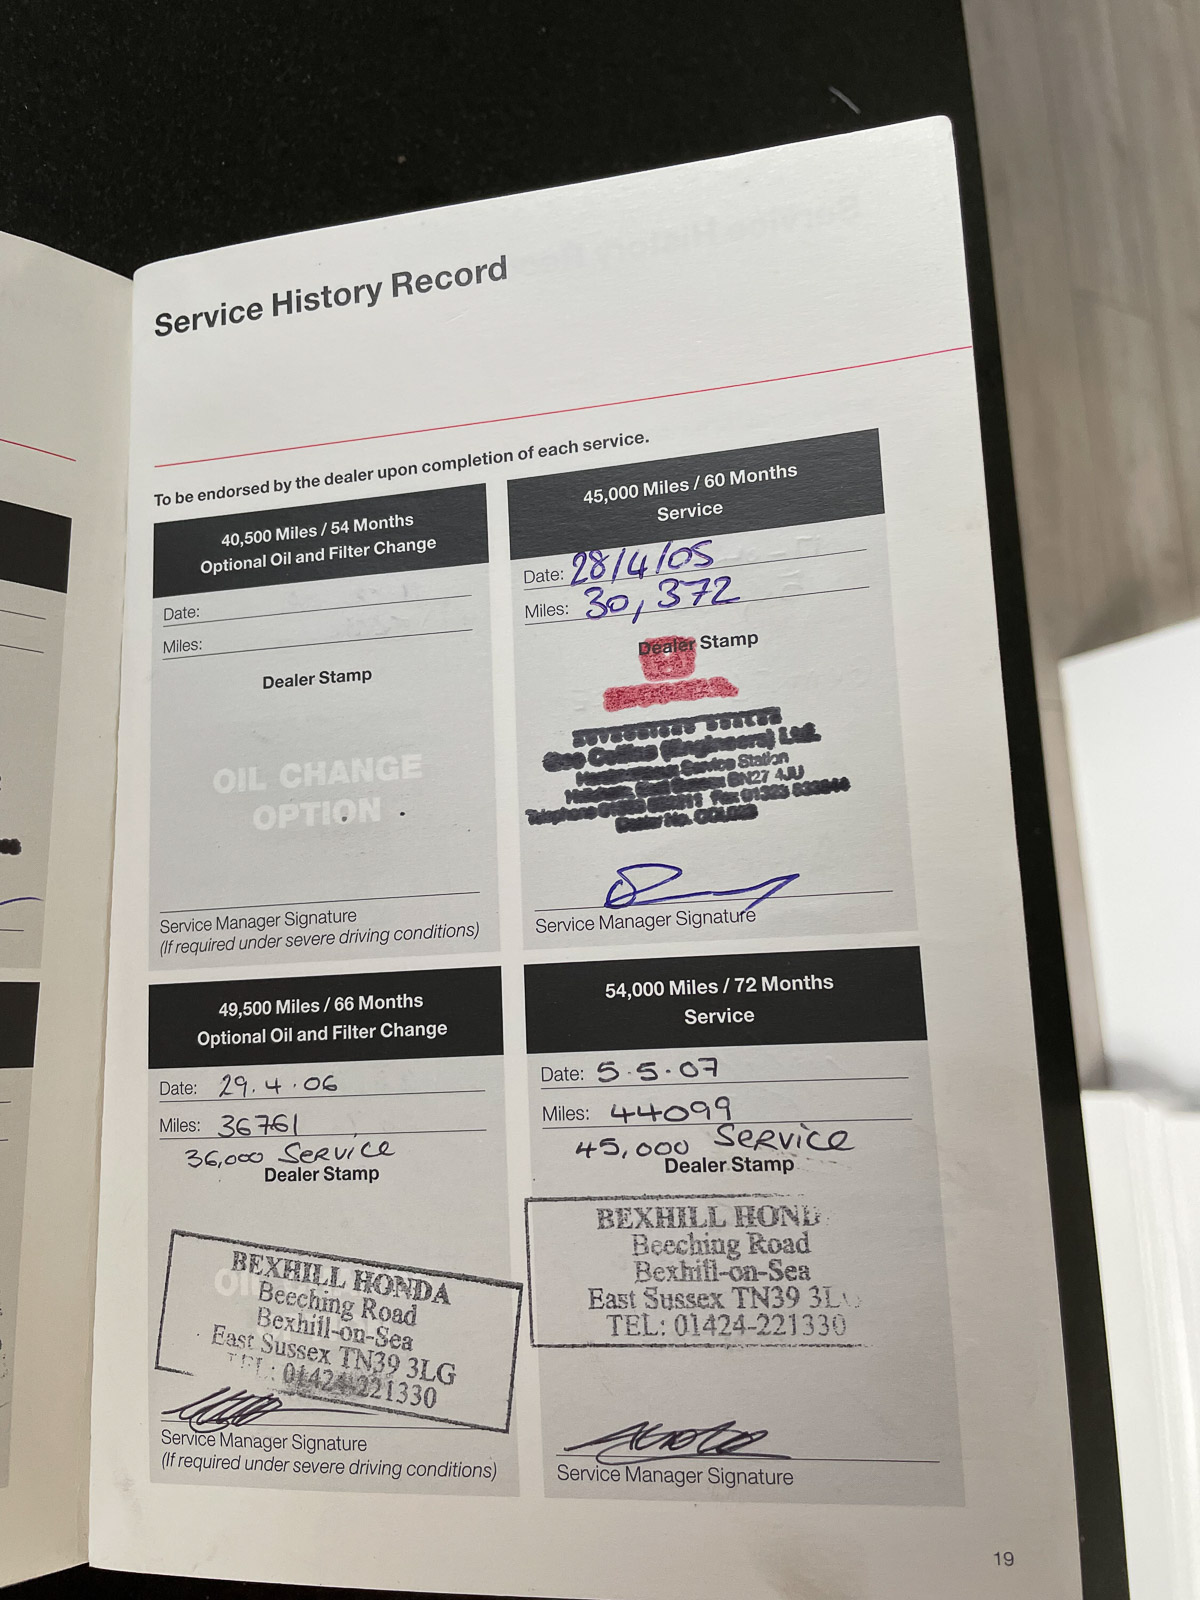 Service History Record
To be endorsed by the dealer upon completion of each service.
40,500 Miles / 54 Months
Optional Oil and Filter Change
Date:
Miles:
Dealer Stamp
OIL CHANGE
OPTION
Service Manager Signature
(If required under severe driving conditions)
45,000 Miles / 60 Months
Service
Date: 28/4/05
Miles: 30,372
Dealer Stamp
Collins (Engineers) Ltd.
Service Station
BN27 4JU
Telephone Fax 01323
Dealer No.
Service Manager Signature
49,500 Miles / 66 Months
Optional Oil and Filter Change
Date: 29.4.06
Miles: 36761
36,000 SERVICE
Dealer Stamp
BEXHILL HONDA
Beeching Road
Bexhill-on-Sea
East Sussex TN39 3LG
TEL: 01424-221330
Service Manager Signature
(If required under severe driving conditions)
54,000 Miles / 72 Months
Service
Date: 5.5.07
Miles: 44099
45,000 SERVICE
Dealer Stamp
BEXHILL HOND
Beeching Road
Bexhill-on-Sea
East Sussex TN39 3L
TEL: 01424-221330
Service Manager Signature
19